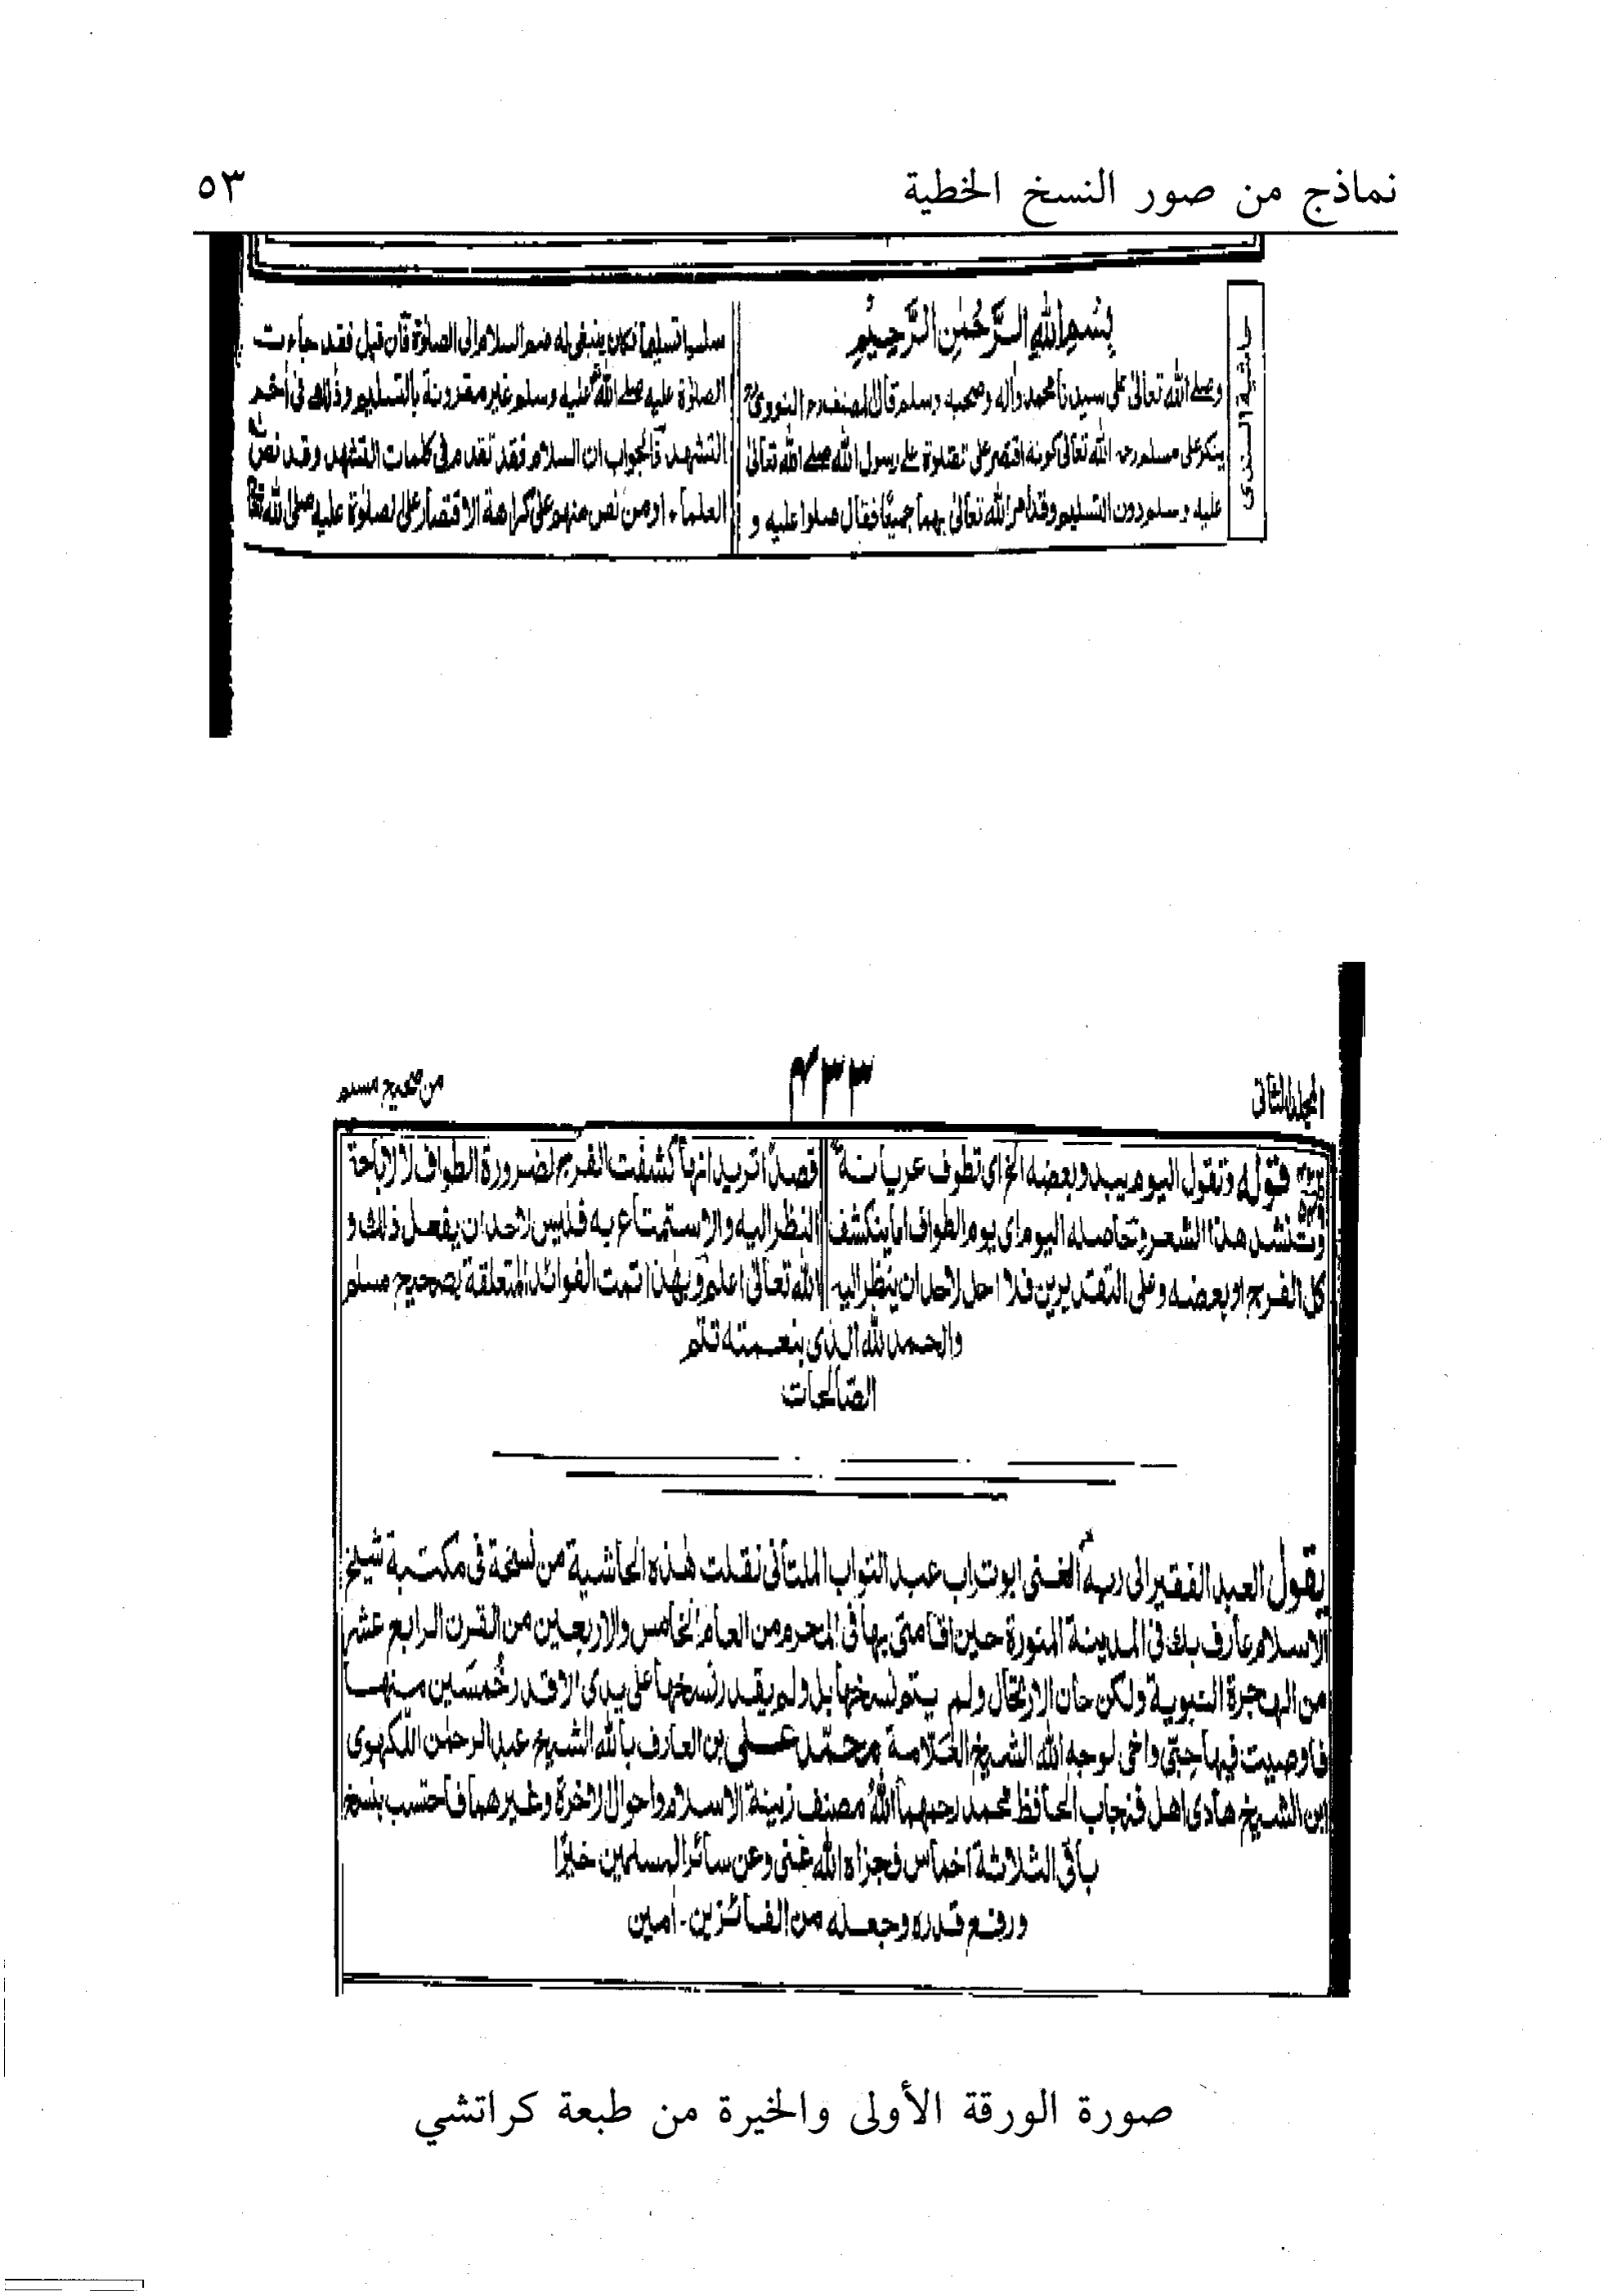 نماذج من صور النسخ الخطية
٥٣
حاشية السندى
بسم الله الرحمن الرحيم
وصلى الله تعالى على سيدنا محمد وآله وصحبه وسلم قال المصنف رح النووى
ينكر على مسلم رحمه الله تعالى كونه اقتصر على الصلوة على رسول الله صلى الله تعالى
عليه وسلم دون التسليم وقد امر الله تعالى بهما جميعًا فقال صلوا عليه و
سلموا تسليما فكان ينبغى له ضم السلام الى الصلوة فان قيل فقد جاءت
الصلوة عليه صلى الله عليه وسلم غير مقرونة بالتسليم وذلك فى آخر
التشهد فالجواب ان السلام فقد تقدم فى كلمات التشهد وقد نص
العلماء او من نص منهم على كراهة الاقتصار على الصلوة عليه صلى الله
المجلد الثانى
٤٣٣
من صحيح مسلم
قوله وتقول اليوم يبدو بعضه الخ اى تطوف عريانة
وتنشد هذا الشعر وحاصله اليوم اى يوم الطواف اما ينكشف
كل الفرج او بعضه وعلى التقديرين فلا احل لاحد ان ينظر اليه
قصدًا تريد انها كشفت الفرج لضرورة الطواف لا لاباحة
النظر اليه والاستمتاع به فليس لاحد ان يفعل ذلك و
الله تعالى اعلم وبهذا تمت الفوائد المتعلقة بصحيح مسلم
والحمد لله الذى بنعمته تتم
الصالحات
يقول العبد الفقير الى ربه الغنى ابو تراب عبد التواب الملتانى نقلت هذه الحاشية من نسخة فى مكتبة شيخ
الاسلام عارف بك فى المدينة المنورة حين اقامتى بها فى المحرم من العام الخامس والاربعين من القرن الرابع عشر
من الهجرة النبوية ولكن حان الارتحال ولم يتم نسخها بل ولم يقدر نسخها على يدى الا قدر خمسين منها
فاوصيت فيها حبى واخى لوجه الله الشيخ العلامة محمد على بن العارف بالله الشيخ عبد الرحمن اللكهوى
ابن الشيخ هادى اهل فنجاب الحافظ محمد رحمهما الله مصنف زينة الاسلام واحوال الاخرة وغيرهما فاحتسب بنسخ
باقى الثلاثة اخماس فجزاه الله عنى وعن سائر المسلمين خيرًا
ورفع قدره وجعله من الفائزين - آمين
صورة الورقة الأولى والخيرة من طبعة كراتشي